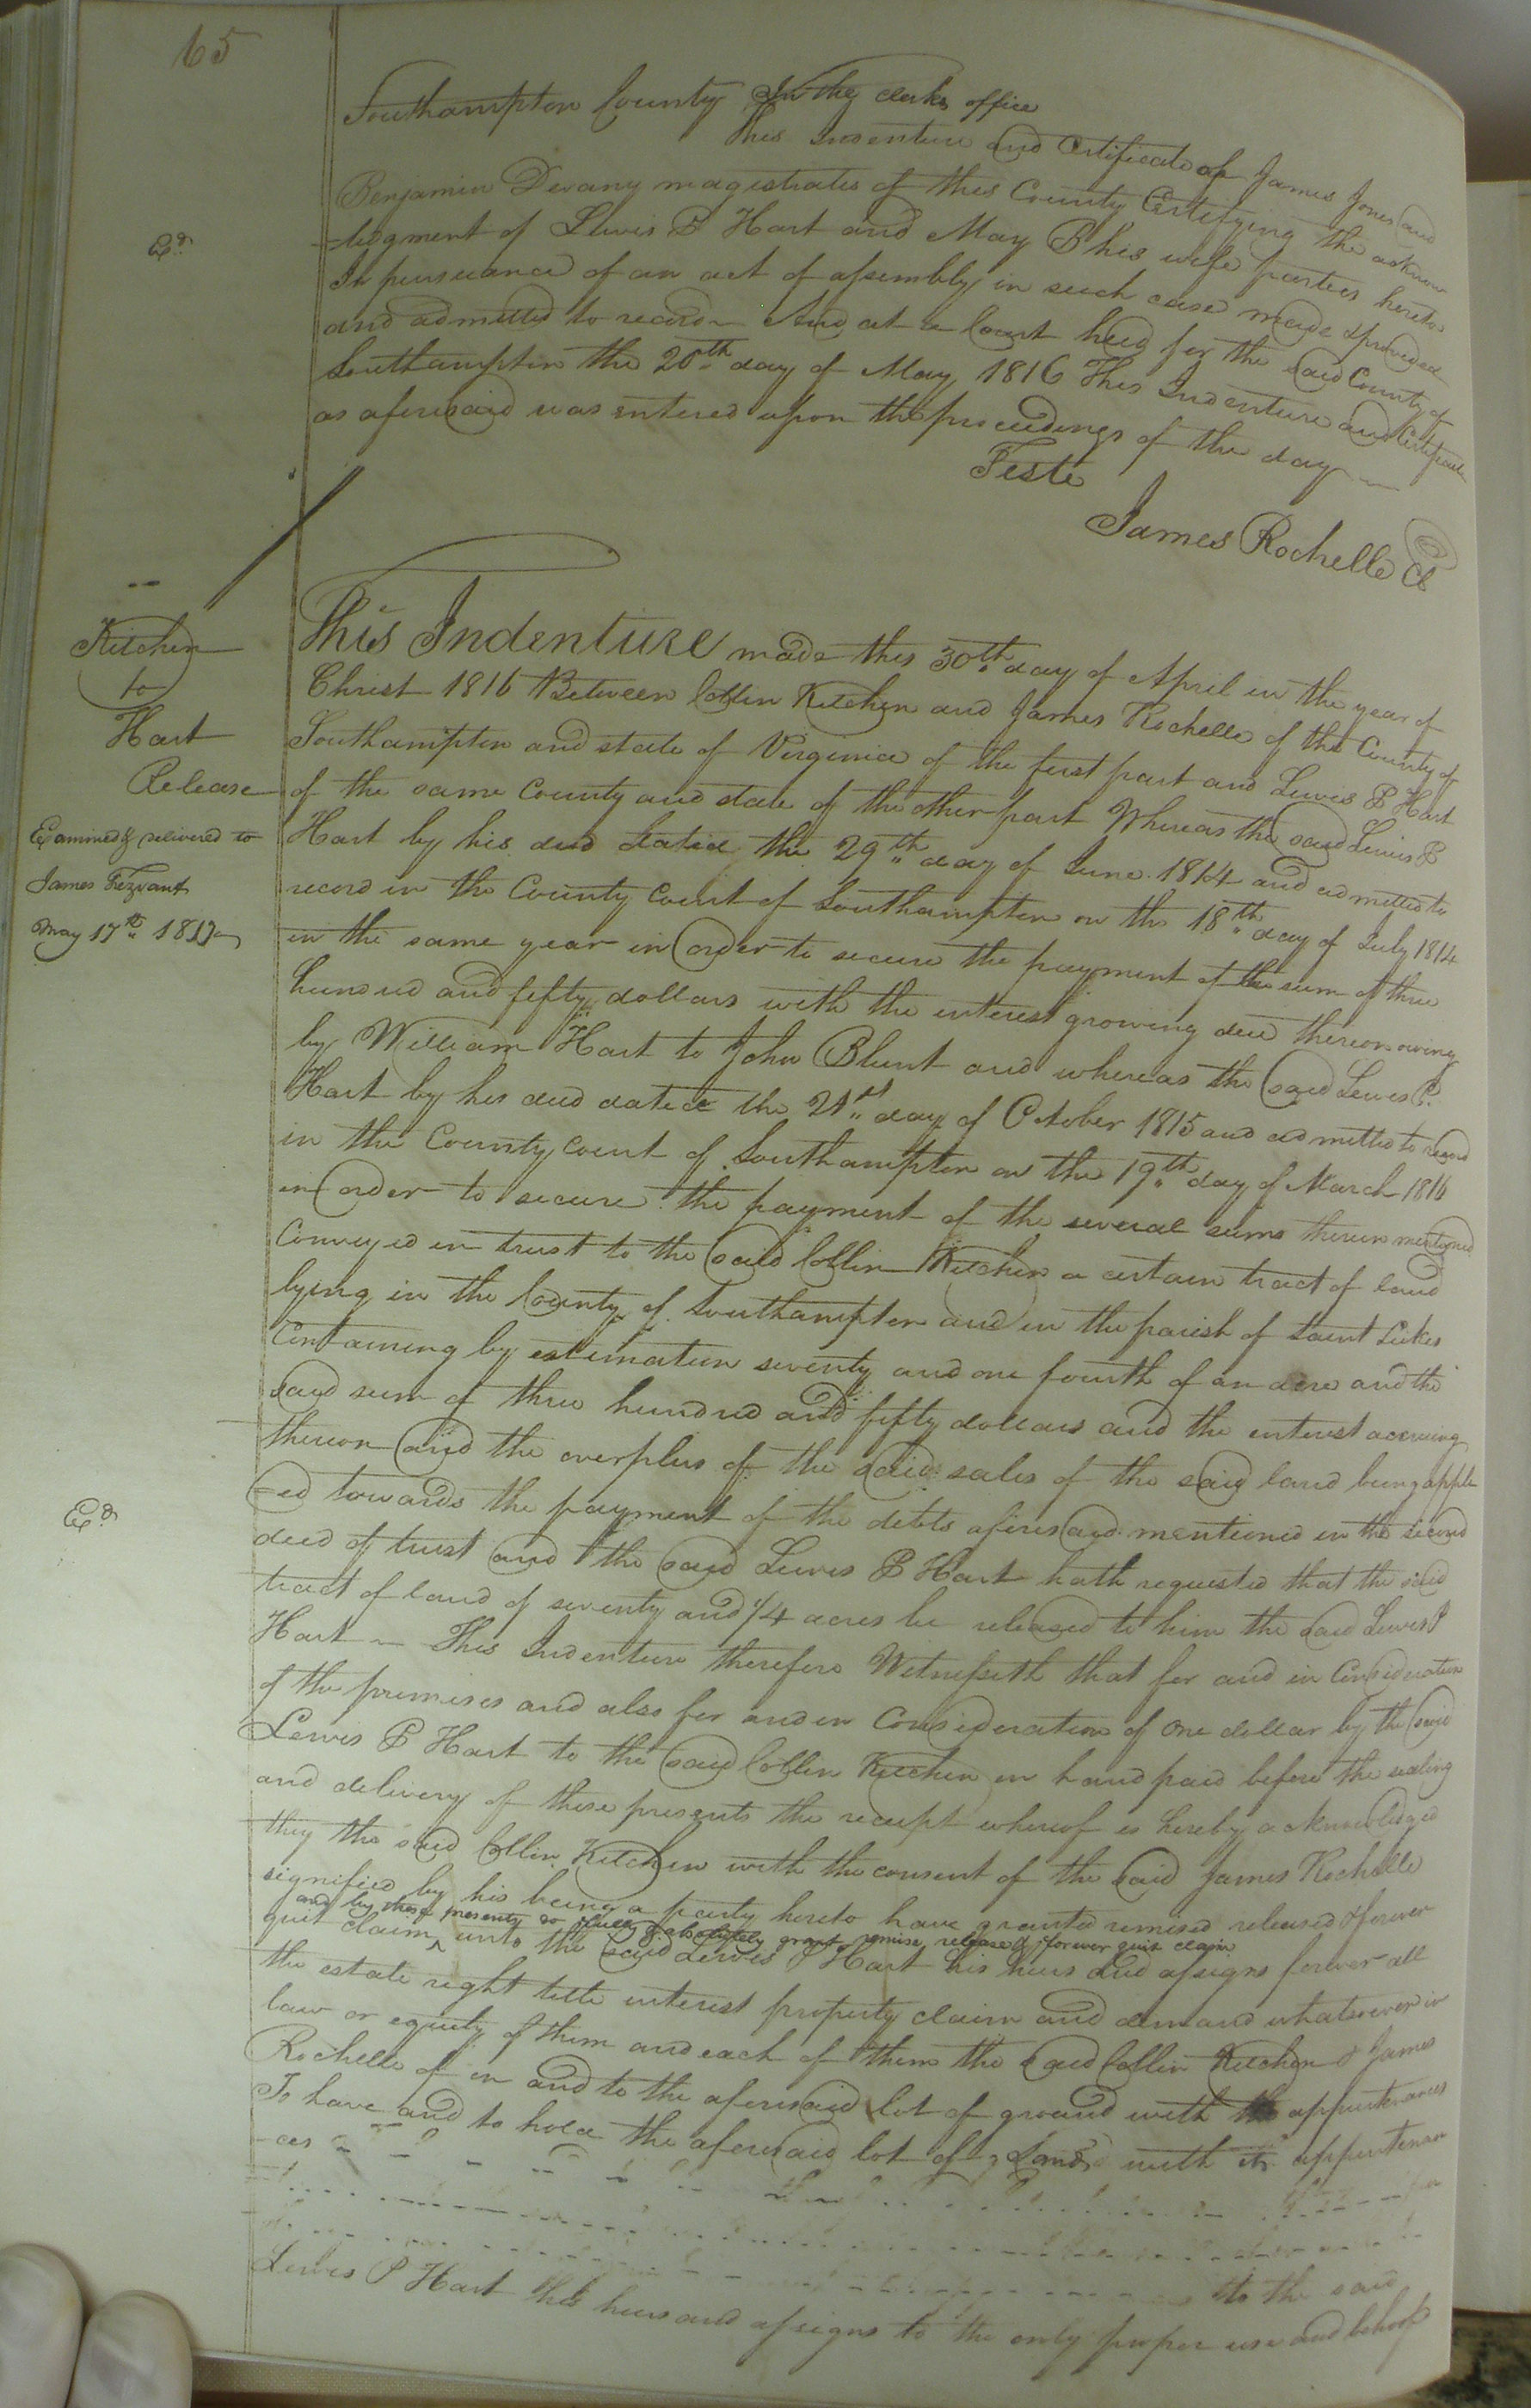 65
Southampton County In the clerks office
This Indenture and Certificate of James Jones and
Benjamin Devany magistrates of this County Certifying the acknow
-ledgment of Lewis P Hart and May B his wife parties hereto
In pursuance of an act of assembly in such case made & provided
and admitted to record — And at a Court held for the said County of
Southampton the 20th day of May 1816 This Indenture and Certificate
as aforesaid was entered upon the proceedings of the day —
Teste
James Rochelle Cl
Exd
Kitchen
to
Hart
Release
Examined & delivered to
James Trezvant
May 17th 1817
This Indenture made this 30th day of April in the year of
Christ 1816 Between Collin Kitchen and James Rochelle of the County of
Southampton and state of Virginia of the first part and Lewis P Hart
of the same County and state of the other part Whereas the said Lewis P
Hart by his deed dated the 29th day of June 1814 and admitted to
record in the County Court of Southampton on the 18th day of July 1814
in the same year in order to secure the payment of the sum of three
hundred and fifty dollars with the interest growing due thereon owing
by William Hart to John Blunt and whereas the said Lewis P.
Hart by his deed dated the 21st day of October 1815 and admitted to record
in the County Court of Southampton on the 19th day of March 1816
in order to secure the payment of the several sums therein mentioned
Conveyed in trust to the said Collin Kitchen a certain tract of land
lying in the County of Southampton and in the parish of Saint Lukes
Containing by estimation seventy and one fourth of an acre and the
said sum of three hundred and fifty dollars and the interest accruing
thereon and the overplus of the said sales of the said land being appli
-ed towards the payment of the debts aforesaid mentioned in the second
deed of trust and the said Lewis P Hart hath requested that the said
tract of land of seventy and 1/4 acres be released to him the said Lewis P
Hart — This Indenture therefore Witnesseth that for and in Consideration
of the premises and also for and in Consideration of One dollar by the said
Lewis P Hart to the said Collin Kitchen in hand paid before the sealing
and delivery of these presents the receipt whereof is hereby acknowledged
they the said Collin Kitchen with the consent of the said James Rochelle
signified by his being a party hereto have granted remised released & forever
and by these presents do fully & absolutely grant remise release & forever quit claim
quit claim ^ unto the said Lewis P Hart his heirs and assigns forever all
the estate right title interest property claim and demand whatsoever in
law or equity of them and each of them the said Collin Kitchen & James
Rochelle of in and to the aforesaid lot of ground with the appurtenances
To have and to hold the aforesaid lot of Land with its appurtenan
-ces
to the said
Lewis P Hart his heirs and assigns to the only proper use and behoof
Exd